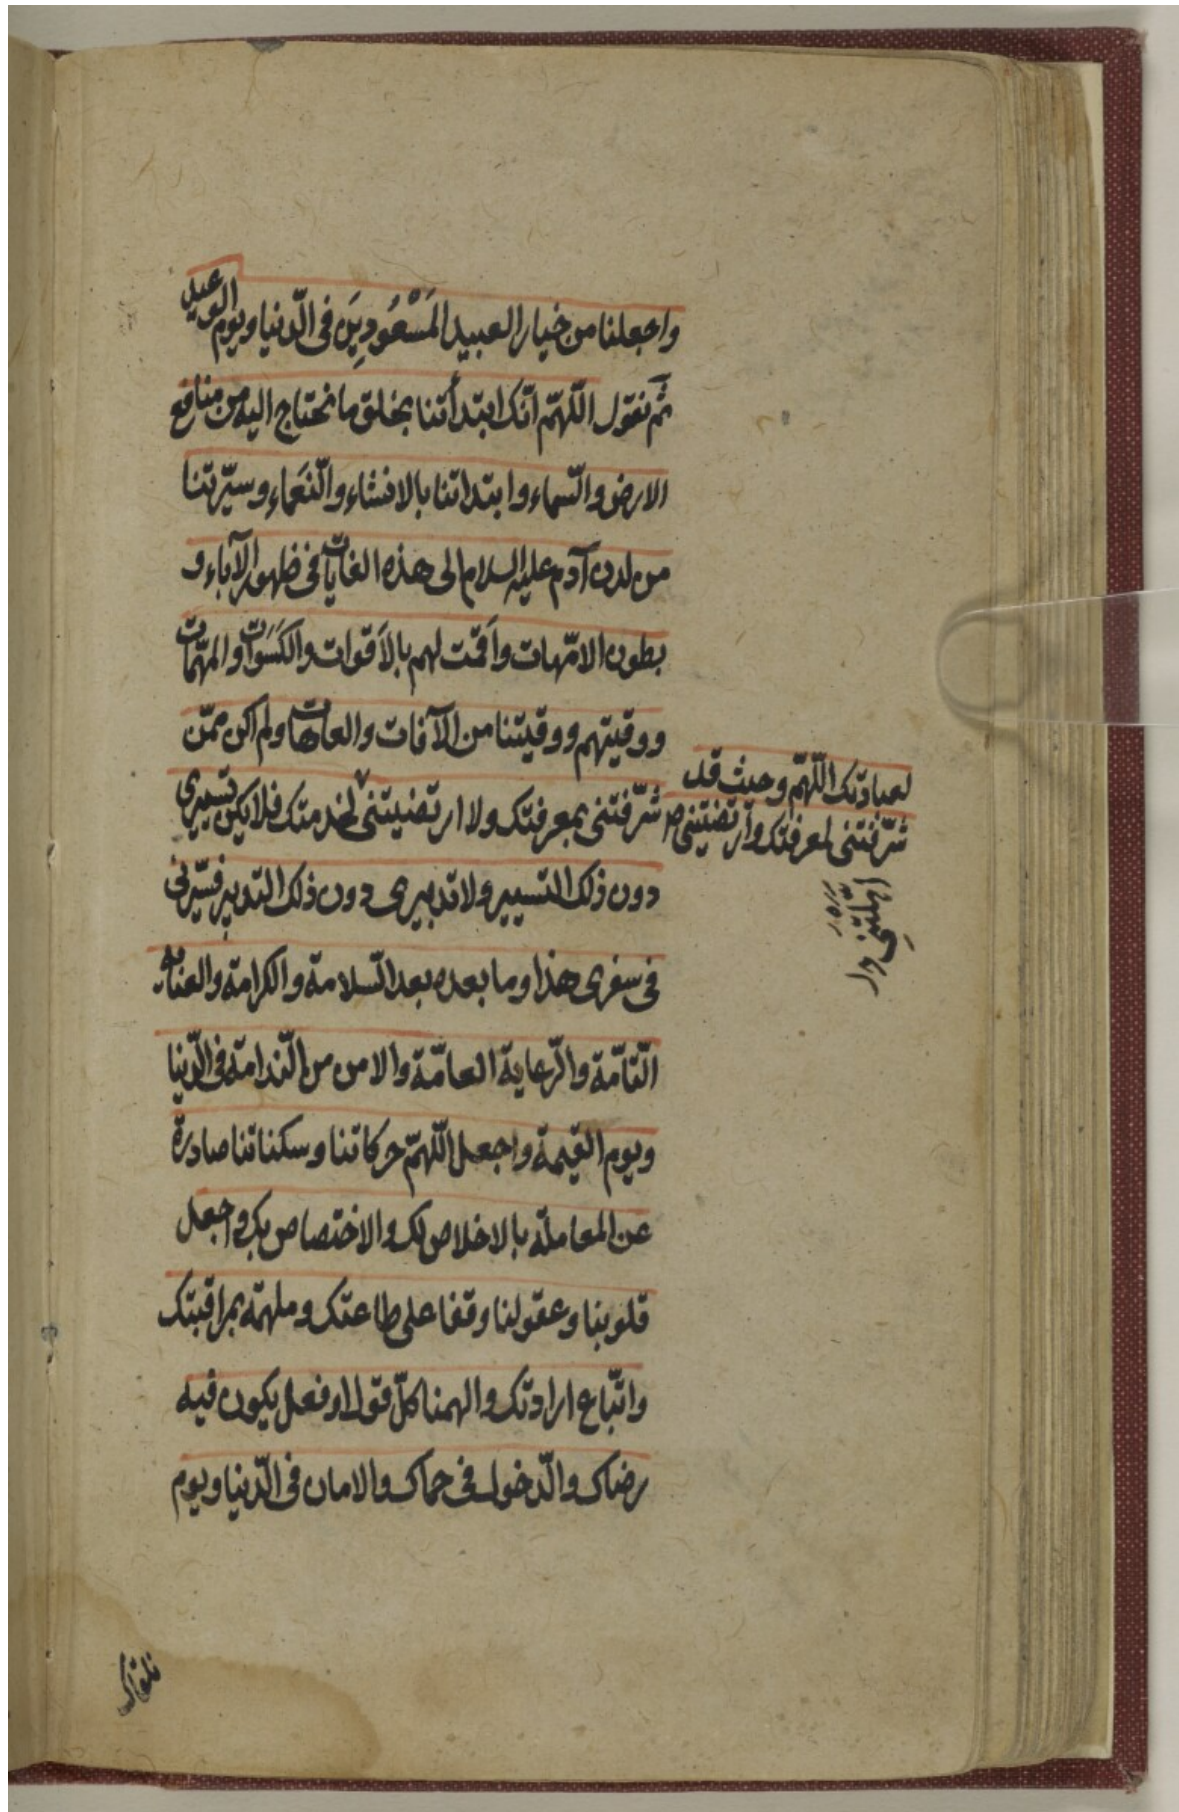 واجعلنا من خيار العبيد المَسْعُودِينَ فى الدّنيا ويوم الوعيد
ثمّ نقول اللّهمّ انّك ابتدأتنا بخلق ما نحتاج اليه من منافع
الارض والسّماء وابتداتنا بالانشاء والنّعَماء وسيّرتنا
من لدن آدم عليه السلام الى هذه الغايات فى ظهور الآباء و
بطون الامّهات واَقمت لهم بالاَقوات والكَسَوات والمهمّات
ووقيتهم ووقيتنا من الآفات والعاهات ولم اكن ممّن
شرّفتنى بمعرفتك ولا ارتضيتنى لخدمتك فلا يكن تسييرى
دون ذلك التسيير ولا تدبيرى دون ذلك التدبير فسيّرنى
فى سفرى هذا وما بعده بعد السّلامة والكرامة والعناية
التّامّة والرّعاية العامّة والامن من النّدامة فى الدّنيا
ويوم القيمة واجعل اللّهمّ حركاتنا وسكناتنا صادرة
عن المعاملة بالاخلاص لك والاختصاص بك واجعل
قلوبنا وعقولنا وقفا على طاعتك وملهمة بمراقبتك
واتّباع ارادتك والهمنا كلّ قول او فعل يكون فيه
رضاك والدّخول فى حماك والامان فى الدّنيا ويوم
لعبادتك اللّهمّ وحيث قد
شرّفتنى لمعرفتك وارتضيتنى
اهّلتنِى